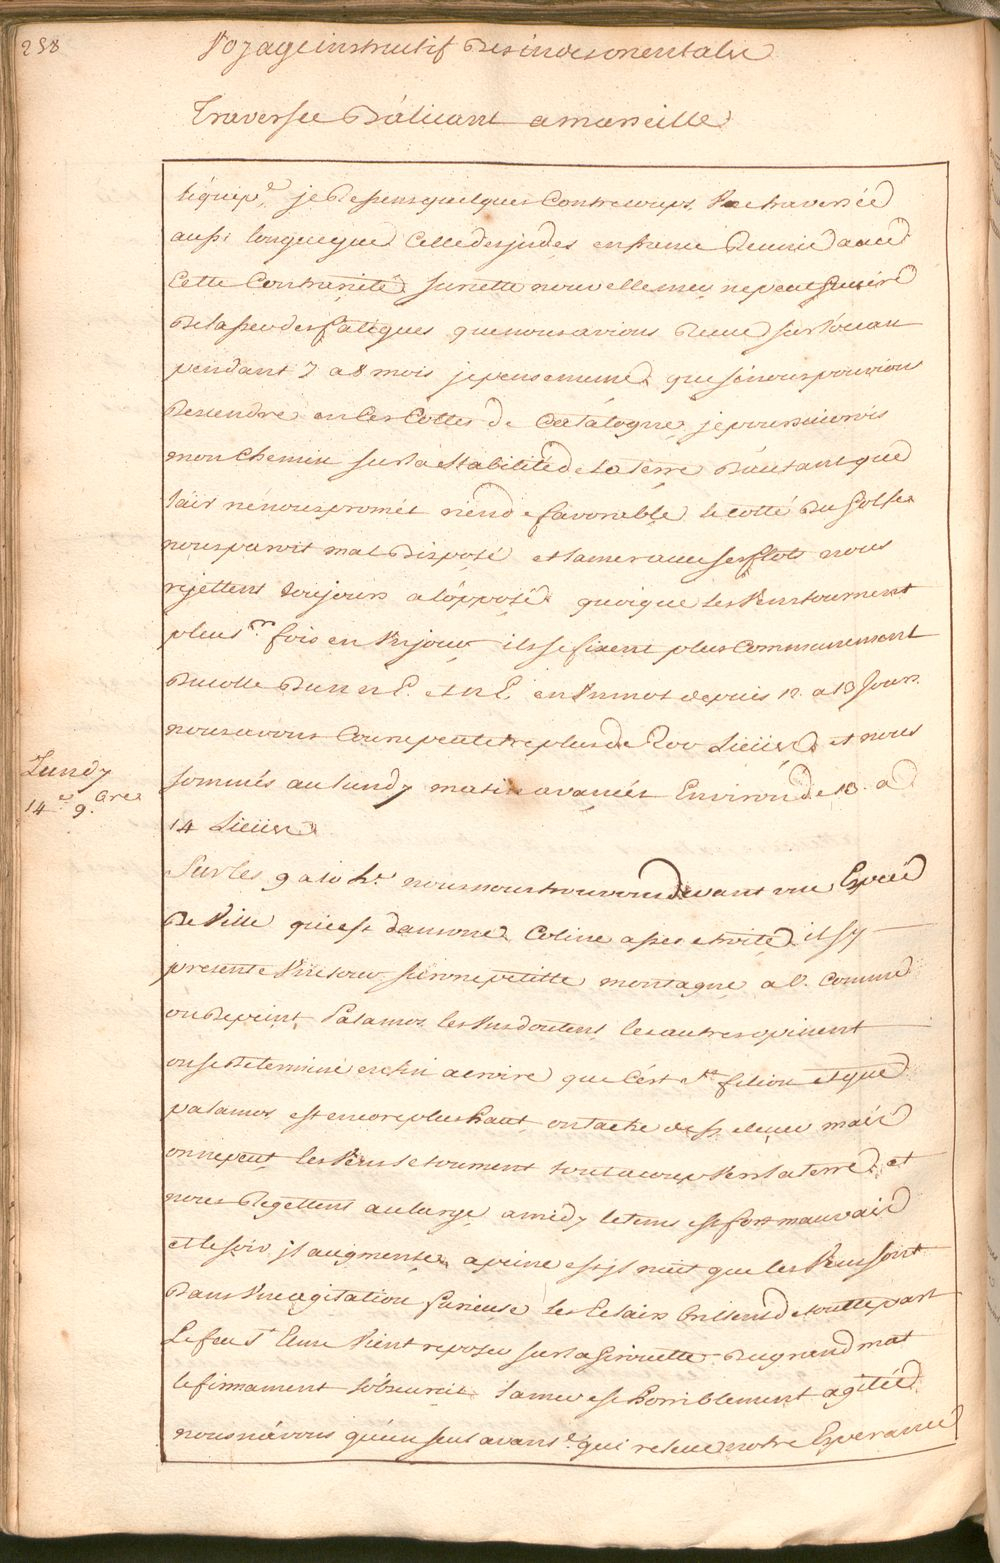 258
Voyage instructif Des indes orientales
Traversée D'alicant a marseille
l'équip.e je Ressens quelques Contrecoups. Une traversée
aussi longue que Celle des jndes en france Reunie avec
Cette Contrarieté sur cette nouvelle mer ne peut
Delasser des fatigues que nous avions Reçeu sur l'ocean
pendant 7 a 8 mois je pense meme que si nous pouvions
Descendre en Ces Cottes de Catalogne, je poursuivrois
mon Chemin sur la Stabilité de la terre D'autant que
l'air ne nous promêt rien de favorable le cotté Du Golfe
nous paroit mal Disposé et la mer avec ses flots nous
rejettent toujours a l'opposé quoique les Vens tournent
plus.rs fois en Un jour ils se fixent plus Communement
Du cotte Du n n E. et n E. en Un mot depuis 12 a 13 Jours
nous avons Couru peut etre plus de 200 Lieües et nous
Lundy
14.e 9.bre
sommes au lundy matin avancés Environ de 13 a
14 Lieües
Sur les 9 a 10 h.r nous nous trouvons devant une Espece
De Ville qui est dans une Coline assés etroite il s'y
presente Une tour sur une petitte montagne a l'. Comme
on Depeint Palamos les Uns doutent les autres opinent
on se Determine enfin a croire que C'est s.t filiou et que
palamos est encore plus haut on tache de s'y elever mais
on ne peut les Vens se tournent tout a coup Vers la terre et
nous Regettent au large a midy le tems est fort mauvais
et le soir jl augmente a peine est jl nuit que les Vens sont
Dans Une agitation furieuse les Eclairs brillent de toutte part
Le feu S.t Elme Vient reposer sur la Girouette Du grand mat
le firmament s'obscurcit la mer est horriblement agitée
nous n'avons qu'un seul avant.e qui releve notre Esperance